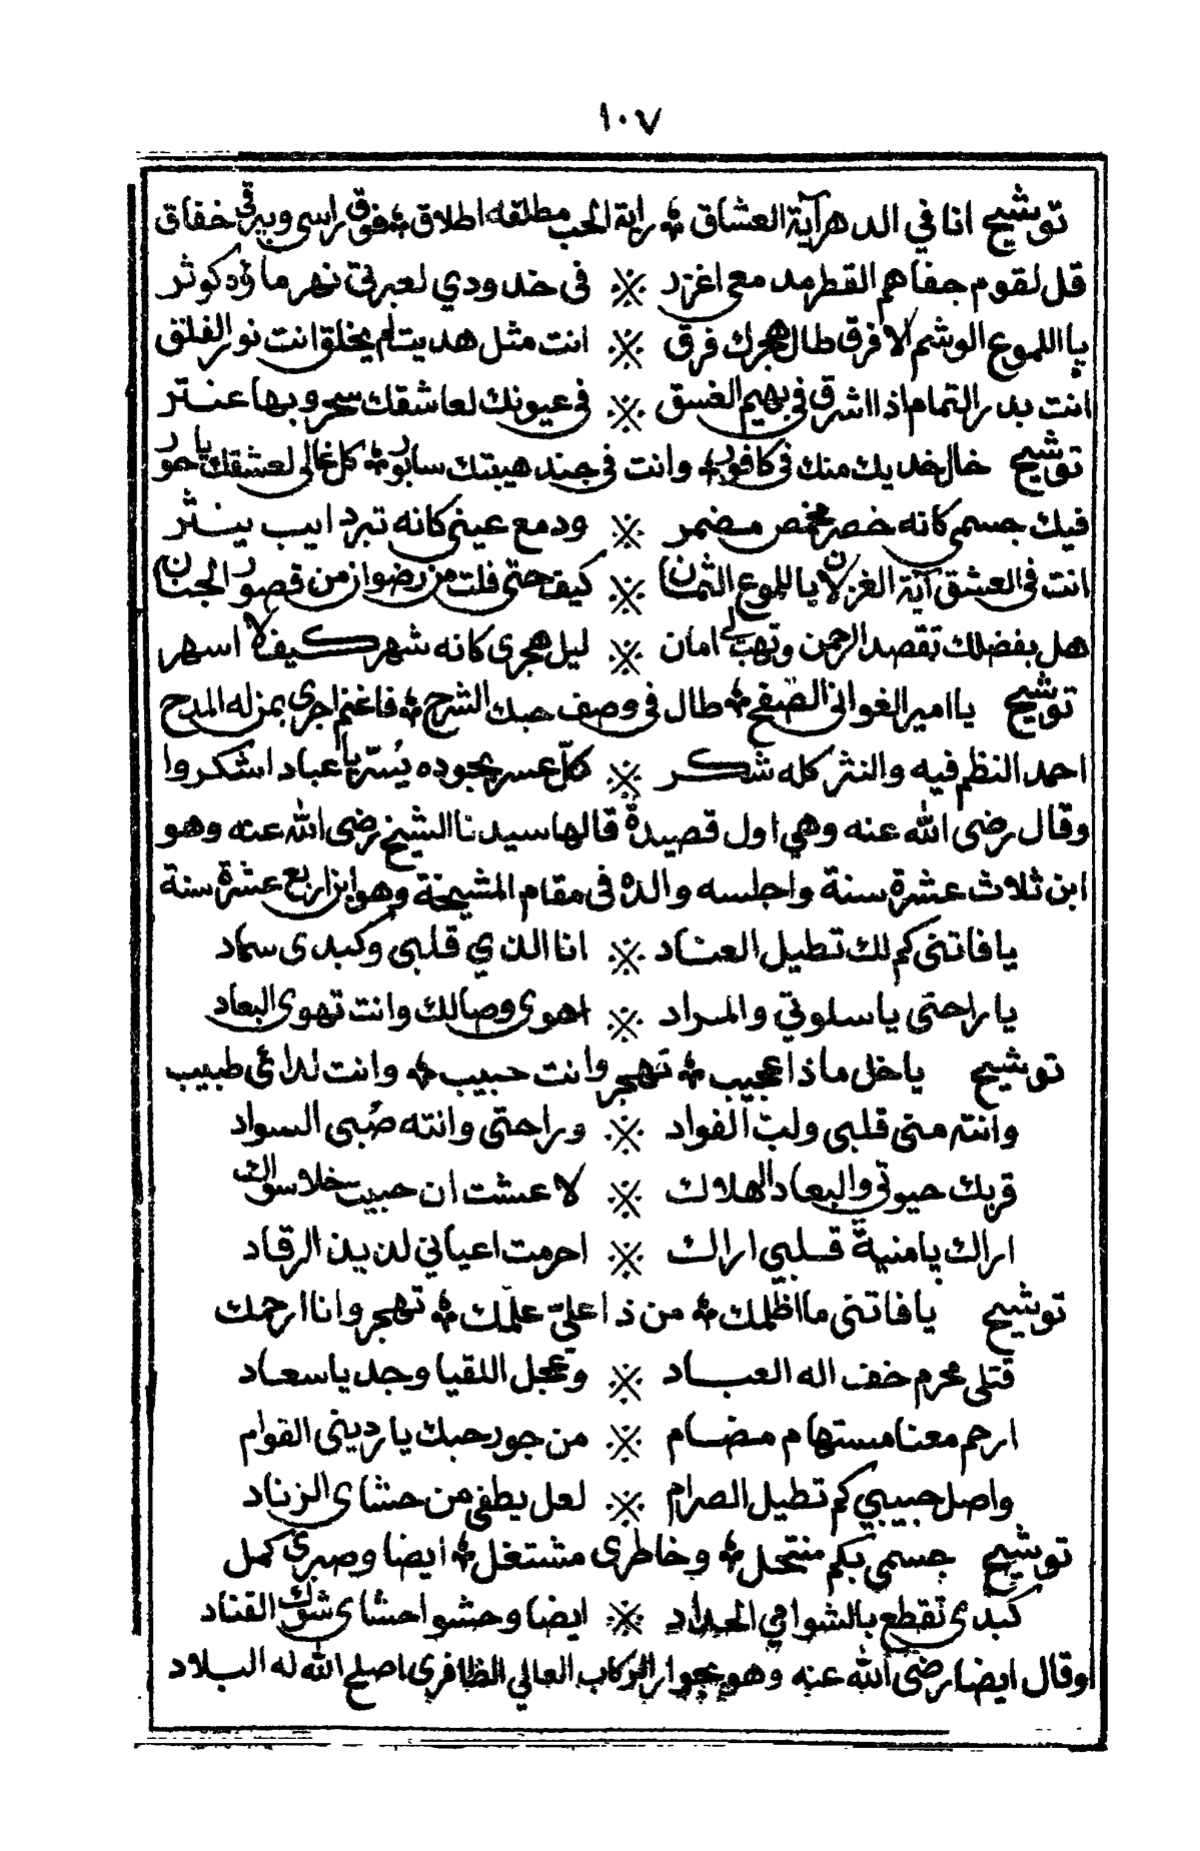 ١٠٧
توشيح انا في الدهر آية العشاق ❊ راية الحب مطلقه اطلاق ❊ فوق راسي وبيرقي خفاق
قل لقوم جفاهم القطر مدمعي اغزر ※ في خدودي لعبرتي نهر ماؤه كوثر
يا اللموع الوشم الافرق طال هجرك فرق ※ انت مثل هديت لم يخلق انت نور الفلق
انت بدر التمام اذا اشرق في بهيم الغسق ※ في عيونك لعاشقك سحر وبها عنتر
توشيح خال خديك منك في كافور ❊ وانت في جند هيبتك سابور ❊ كل غالي لعشقك يا حور
فيك جسمي كانه خصر مخص مضمر ※ ودمع عيني كانه تبر دايب ينثر
انت في العشق آية الغزلان يا للموع الثمان ※ كيف حتى فلت من رضوان من قصور الجنان
هل بفضلك تقصد الرحمن وتهب لي امان ※ ليل هجري كانه شهر كيف لا اسهر
توشيح يا امير الغواني الصفح ❊ طال في وصف حبك الشرح ❊ فاغنم اجري بمن له المدح
احمد النظم فيه والنثر كله شكر ※ كلّ عسر بجوده يُسّر يا عباد اشكروا
وقال رضى الله عنه وهي اول قصيدة قالها سيدنا الشيخ رضى الله عنه وهو
ابن ثلاث عشرة سنة واجلسه والده في مقام المشيخة وهو ابن اربع عشرة سنة
يا فاتنى كم لك تطيل العناد ※ انا الذي قلبي وكبدى سماد
يا راحتى يا سلوتي والمراد ※ اهوى وصالك وانت تهوى البعاد
توشيح يا خل ماذا عجيب ❊ تهجر وانت حبيب ❊ وانت لدائي طبيب
وانته متى قلبي ولبّ الفواد ※ وراحتى وانته صُبى السواد
قربك حيوتي والبعاد الهلاك ※ لا عشت ان حبيت خلا سواك
اراك يا منية قلبي اراك ※ احرمت اعياني لذيذ الرقاد
توشيح يا فاتنى ما اظلمك ❊ من ذا عليّ علّمك ❊ تهجر وانا ارحمك
قتلى محرم خف اله العباد ※ وعجل اللقيا وجد يا سعاد
ارحم معنا مستهام مضام ※ من جور حبك يا رديني القوام
واصل حبيبي كم تطيل الصرام ※ لعل يطفى من حشاى الزناد
توشيح جسمى بكم منتحل ❊ وخاطرى مشتغل ❊ ايضا وصبري كمل
كبدى تقطع بالشوامي الحداد ※ ايضا وحشو احشاى شوك القتاد
وقال ايضا رضى الله عنه وهو بجوار الركاب العالي الظافرى اصلح الله له البلاد